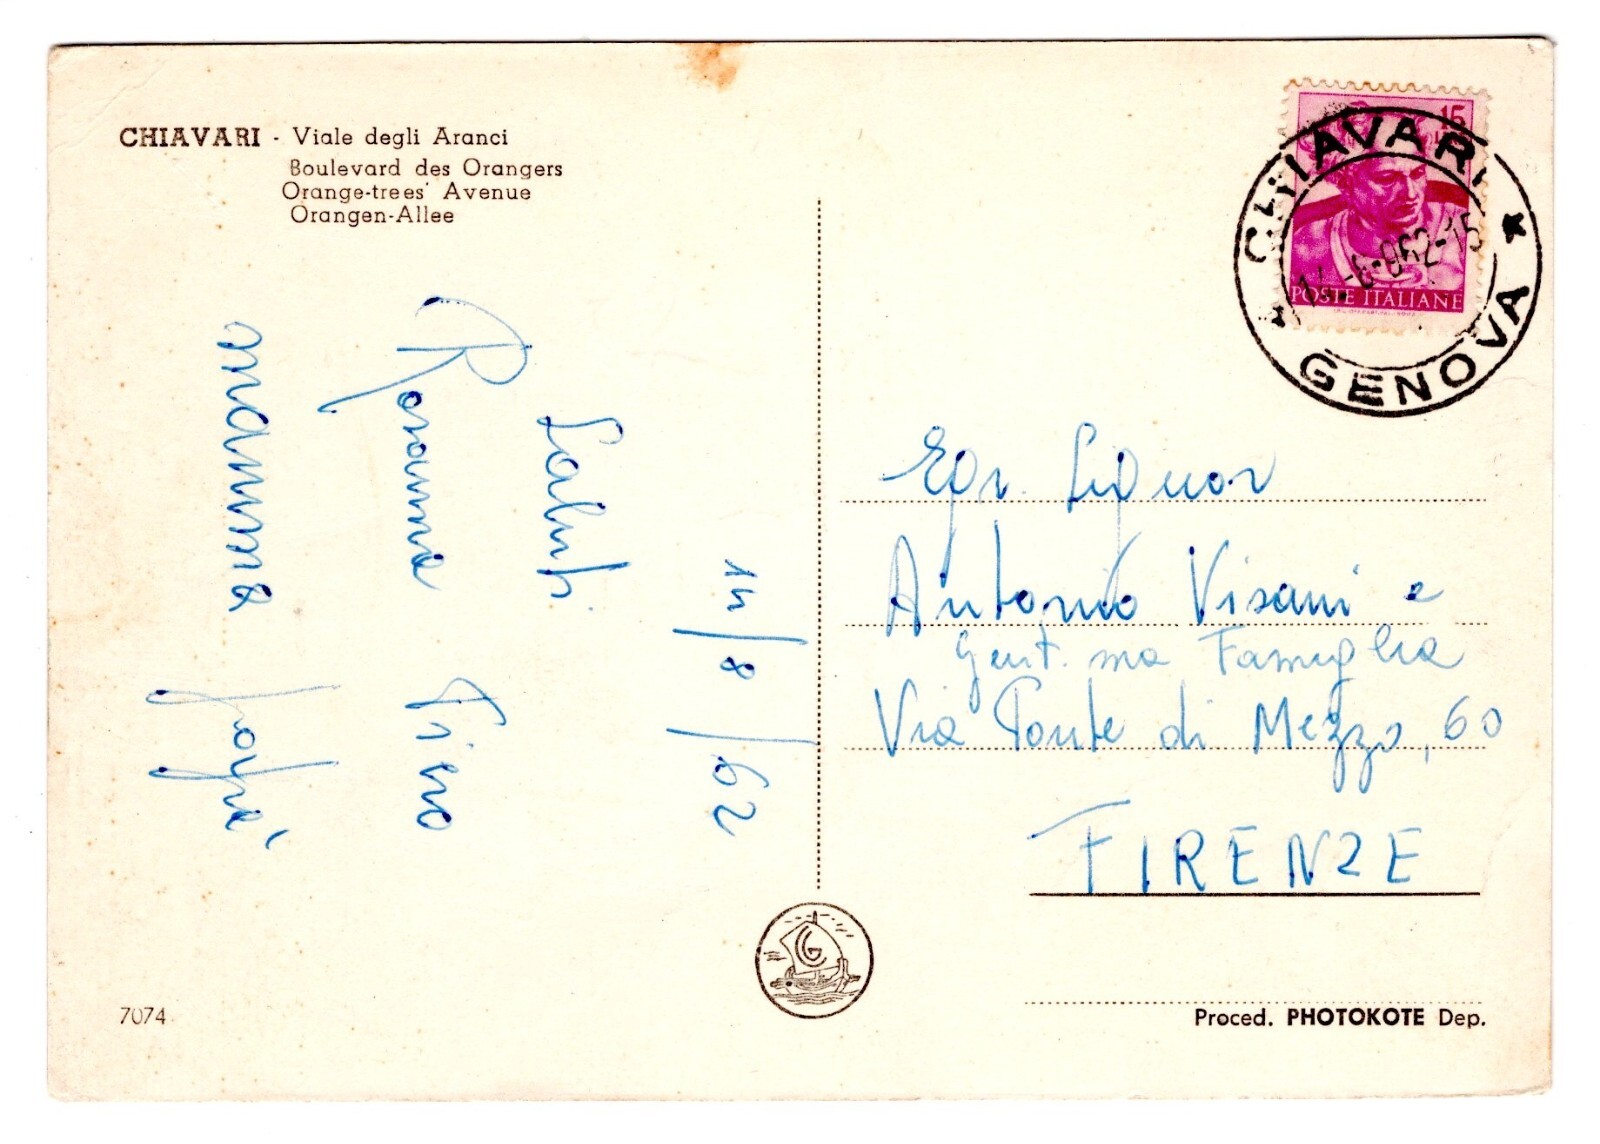 CHIAVARI - Viale degli Aranci
Boulevard des Orangers
Orange-trees' Avenue
Orangen-Allee
14/8/62
Saluti
Rosanna Piero
mamma papà
15
POSTE ITALIANE
CHIAVARI
GENOVA
Egr. Signor
Antonio Visani e
Gent.ma Famiglia
Via Ponte di Mezzo, 60
FIRENZE
7074
Proced. PHOTOKOTE Dep.